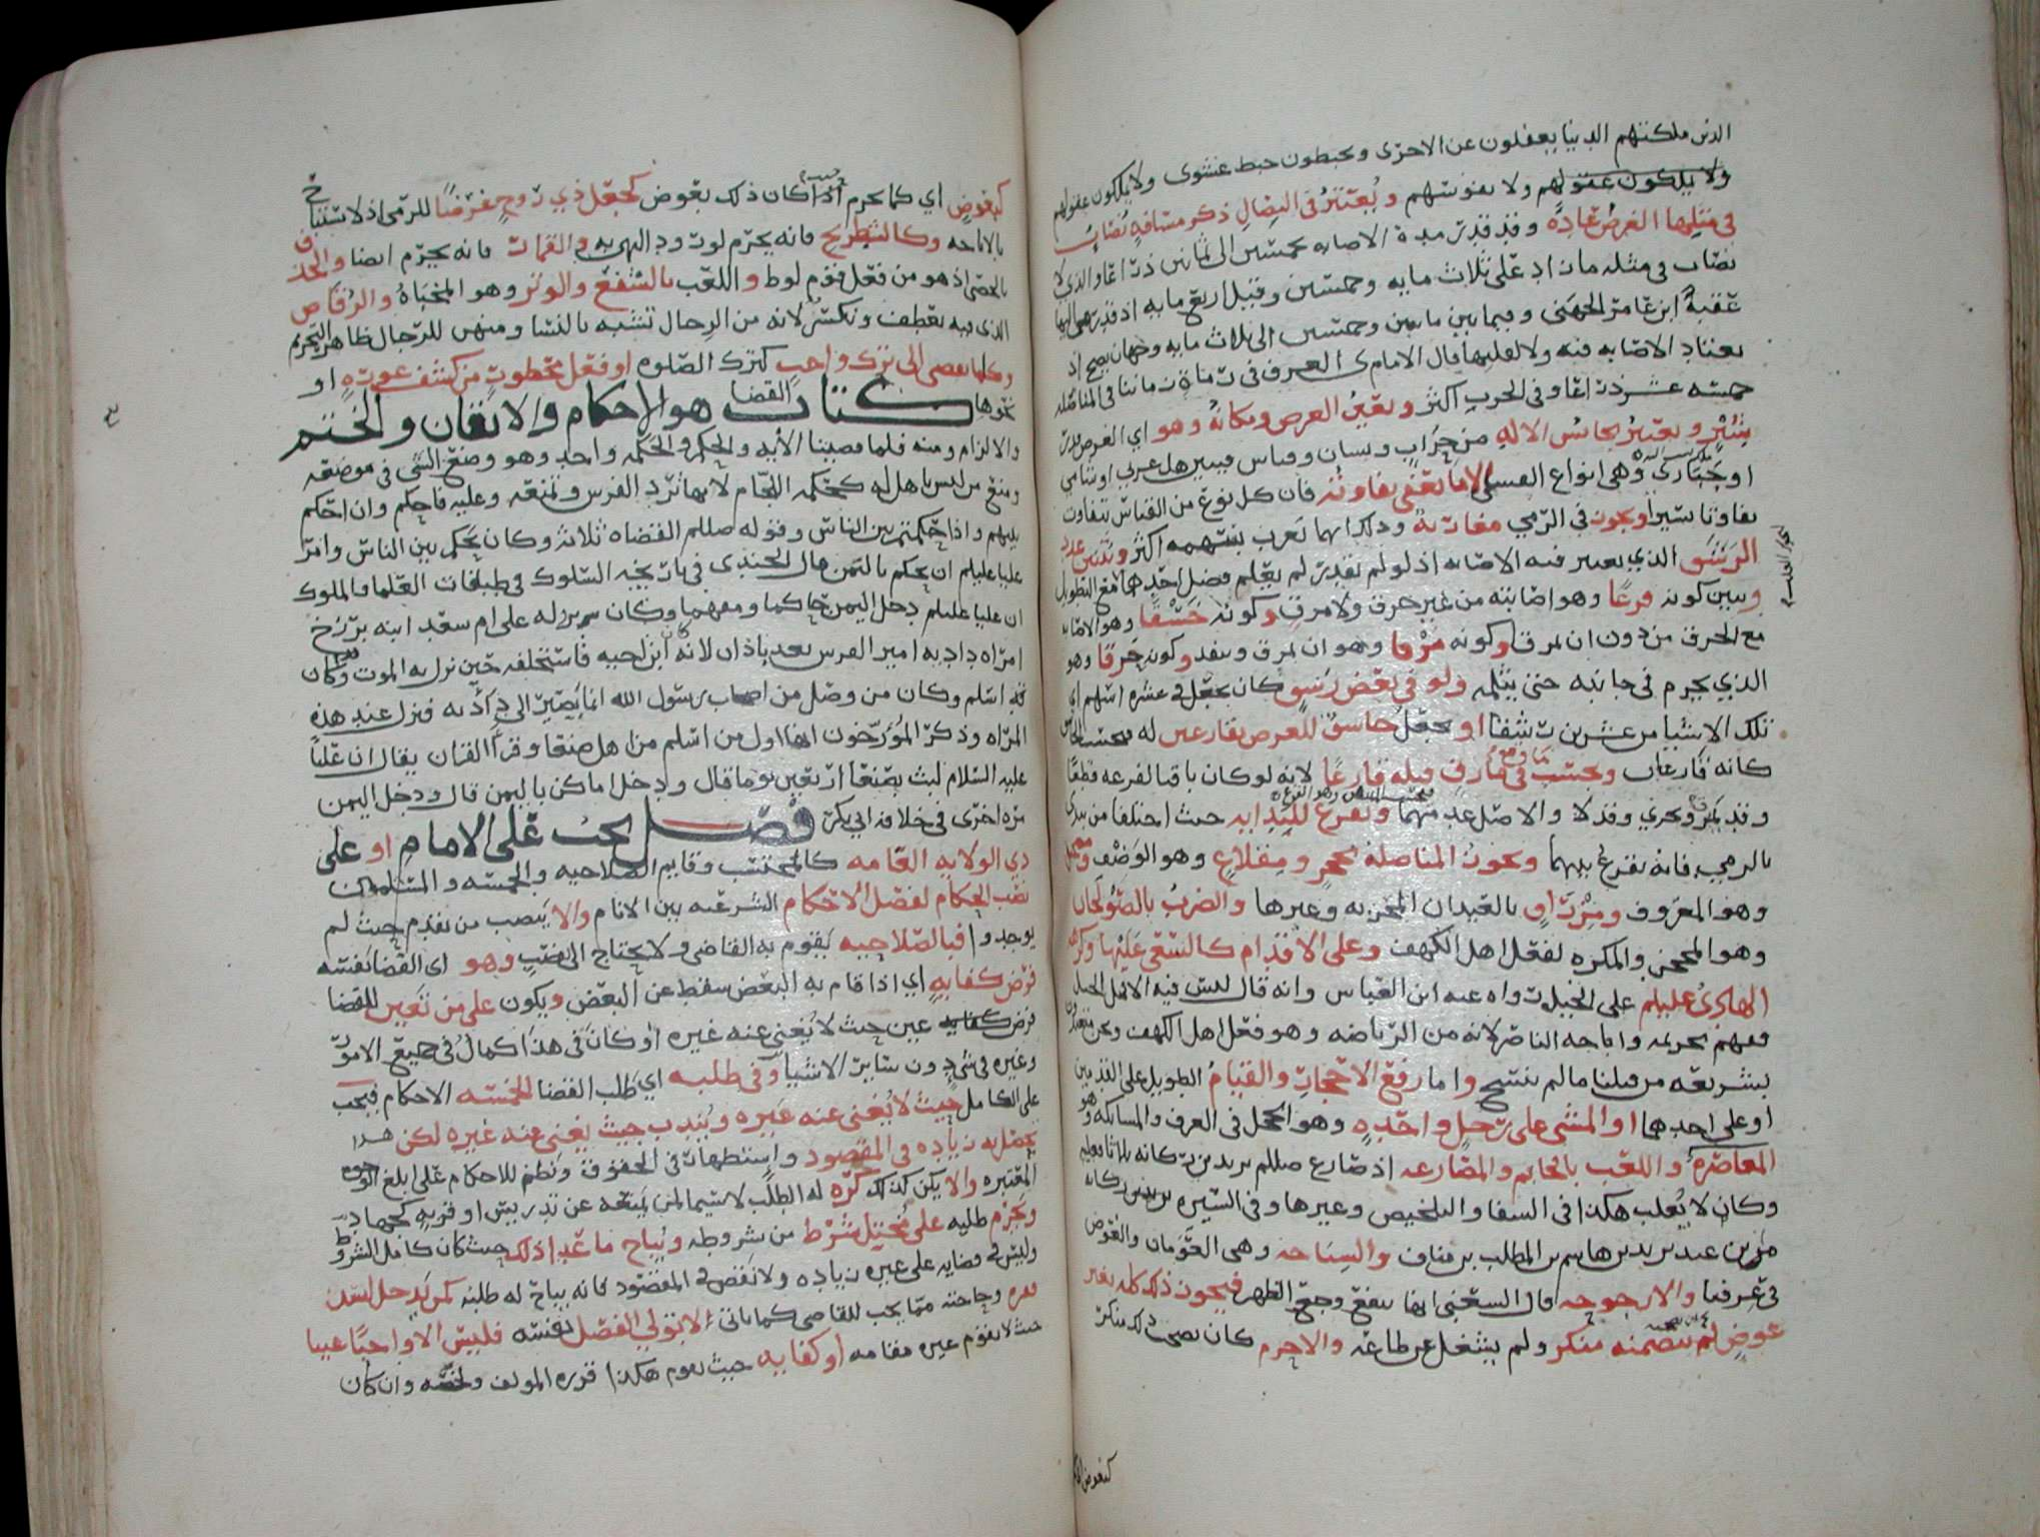 الذين ملكتهم الدنيا يغفلون عن الاخرى ويخبطون خبط عشوى ولا يملكون عقولهم
ولا يملكون عقولهم ولا نفوسهم ويعتبر في النضال ذكر مسافه يصاب
في مثلها الغرض عاده وقد قدرت مدة الاصابه بخمسين الى ثمانين ذراعا والذي لا
يصاب في مثله ما زاد على ثلاث مايه وخمسين وقيل اربع مايه اذ قد رمى اليها
عقبة ابن عامر الجهني وفيما بين مايتين وخمسين الى ثلاث مايه وجهان يصح اذ
يعتاد الاصابه فيه ولا لقلتها قال الامام ى العرف في زماننا في المناضله
خمسه عشر ذراعا وفي الحرب اكثر وتعين الغرض ومكانه وهو اي الغرض
بشبر ويعتبر تجانس الاله من حراب ونسان وقياس فيبين هل عربي او شامي
او وهي انواع القسي الا ما يعفى تفاوته فان كل نوع من القياس يتفاوت
تفاوتا يسيرا ويجوز في الرمي مقاربة وذكر ايهما يقرب بسهمه اكثر وتبين عدد
الرشق الذي يعتبر فيه الاصابه اذ لو لم يقدر لم يعلم فضل احدهما مع التطويل
ويبين كونه قرعا وهو اصابته من غير خرق ولا مرق وكونه خسقا وهو الاصابه
مع الخرق من دون ان يمرق وكونه مرقا وهو ان يمرق وينفذ وكونه خرقا وهو
الذي يخرم في جانبه حتى يثلمه ولو في بعض رشق كان يجعل في عشره اسهم اي
تلك الاشيا من عشرين رشقا او يجعل خاسق للغرض بقارعين له فيحتسب
كانه قارعان ويحتسب في مارق قبله قارعا لانه لو كان باقيا لقرعه قطعا
وقد يمر ويجري وقد لا والاصل عدمهما ويقرع للبدايه حيث اختلفا من يبدى
بالرمي فانه يقرع بينهما ويجوز المناضلة بحجر ومقلاع وهو الوضف
وهو المعروف ومزراق بالعيدان المخزبه وغيرها والضرب بالصولجان
وهو المحجن والمكره لفعل اهل الكهف وعلى الاقدام كالسعي عليها وكره
الهادي عليلم على الخيل رواه عنه ابن العباس وانه قال ليس فيه الا
ففهم تحريمه واباحه الناصر لانه من الرياضه وهو فعل اهل الكهف ونحن متعبدون
بشريعه من قبلنا ما لم ينسخ واما رفع الاحجار والقيام الطويل على القدمين
او على احدهما او المشي على رجل واحده وهو الحجل في العرف والمسابكه وهو
المعاصرة واللعب بالخاتم والمصارعه اذ صارع صللم يزيد بن ركانه
وكان لا يغلب هكذا في الشفا والتلخيص وغيرها وفي السيره يزيد بن ركانه
من بن عبد يزيد بن هاشم بن المطلب بن مناف والسباحه وهي العومان والغوص
في عرفنا والارجوحه قال السحنى انها تنفع وجع الظهر فيجوز ذلك كله بغير
عوض لم يتضمنه منكر ولم يشغل عن طاعه والا حرم كان يصحب ذلك منكر
كبعوض
كبعوض اي كما يحرم اذا كان ذلك بعوض كجعل ذي روح غرضا للرمي اذ لا تستباح
بالاباحه وكالشطرنج فانه يحرم لوت ود الهربه والقمار فانه يحرم ايضا والخذف
بالحصى اذ هو من فعل قوم لوط واللعب بالشفع والوتر وهو المخباه والرقاص
الذي فيه تعطف وتكسر لانه من الرجال تشبه بالنسا ومنهن للرجال ظاهر التحريم
وكلما يفضى الى ترك واجب كترك الصلوه او فعل محظور من كشف عوره او
نحوها كتاب القضا هو الاحكام والاتقان والختم
والالزام ومنه فلما قضينا الآيه والحكم والحكمه واحد وهو وضع الشي في موضعه
ومنع من ليس باهل له كحكمه اللجام لانها ترد الفرس وتمنعه وعليه فاحكم وان احكم
بينهم واذا حكمتم بين الناس وقوله صللم القضاه ثلاثه وكان يحكم بين الناس وامر
عليا عليلم ان يحكم باليمن قال الجندي في تاريخه السلوك في طبقات العلما والملوك
ان عليا عليلم دخل اليمن حاكما ومفهما وكان نزله على ام سعد ابنه بزرج
امراه داديه امير الفرس بعد باذان لانه ابن اخيه فاستخلفه حين نزل به الموت وكان
قد اسلم وكان من وصل من اصحاب رسول الله انما يصير الى دادويه فنزل عند هذه
المراه وذكر المؤرخون انها اول من اسلم من اهل صنعا وقرا القران يقال ان عليا
عليه السلام لبث بصنعا اربعين يوما قال ودخل اماكن باليمن قال ودخل اليمن
مره اخرى في خلافه ابي بكر فصل يجب على الامام او على
ذي الولايه العامه كالمحتسب وقايم الصلاحيه والخمسه والمسلمون
نصب الحكام لفصل الاحكام الشرعيه بين الانام والا ينصب من تقدم حيث لم
يوجدوا فبالصلاحيه يقوم به القاضي ولا يحتاج الى نصب وهو اي القضا نفسه
فرض كفايه اي اذا قام به البعض سقط عن البعض ويكون على من تعين للقضا
فرض كفايه عين حيث لا يغني عنه غيره او كان في هذا كمال في جميع الامور
وغيره في شي دون ساير الاشيا وفي طلبه اي طلب القضا الخمسه الاحكام فيجب
على الكامل حيث لا يغني عنه غيره ويندب حيث يغني عنه غيره لكن هذا
يحصل به زياده في المقصود واستظهار في الحقوق ونظم للاحكام على ابلغ الوجوه
المعتبره والا يكن كذلك كره له الطلب لا سيما لمن يمنعه عن تدريس او قربه كجهاد
ويحرم طلبه على مختل شرط من شروطه ويباح ما عدا ذلك حيث كان كامل الشروط
وليس في قضايه على غيره زياده ولا نقص في المقصود فانه يباح له طلبه كمن يدخل لسد
فقره وحاجته مما يجب للقاضي كما ياتي الا بتولي الفصل بنفسه فليس الا واجبا عينيا
حيث لا يقوم غيره مقامه او كفايه حيث يقوم هكذا قرره المولف ولخصه وان كان